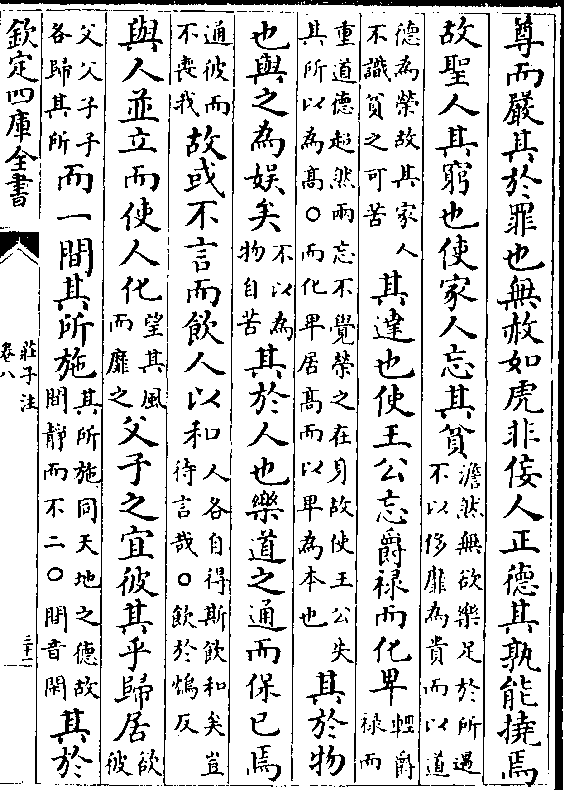 尊而嚴其於罪也無赦如虎非佞人正德其孰能撓焉
故聖人其窮也使家人忘其貧澹然無欲樂足於所遇不以侈靡為貴而以道
德為榮故其家人不識貧之可苦其達也使王公忘爵祿而化卑輕爵祿而
重道德超然兩忘不覺榮之在身故使王公失其所以為髙○而化卑居髙而以卑為本也其於物
也與之為娯矣不以為物自苦其於人也樂道之通而保已焉
通彼而不喪我故或不言而飲人以和人各自得斯飲和矣豈待言哉○飲於鴆反
與人並立而使人化望其風而靡之父子之宜彼其乎歸居欲彼
父父子子各歸其所而一間其所施其所施同天地之德故間靜而不二○間音閑其於
欽定四庫全書
莊子注
卷八
三十一